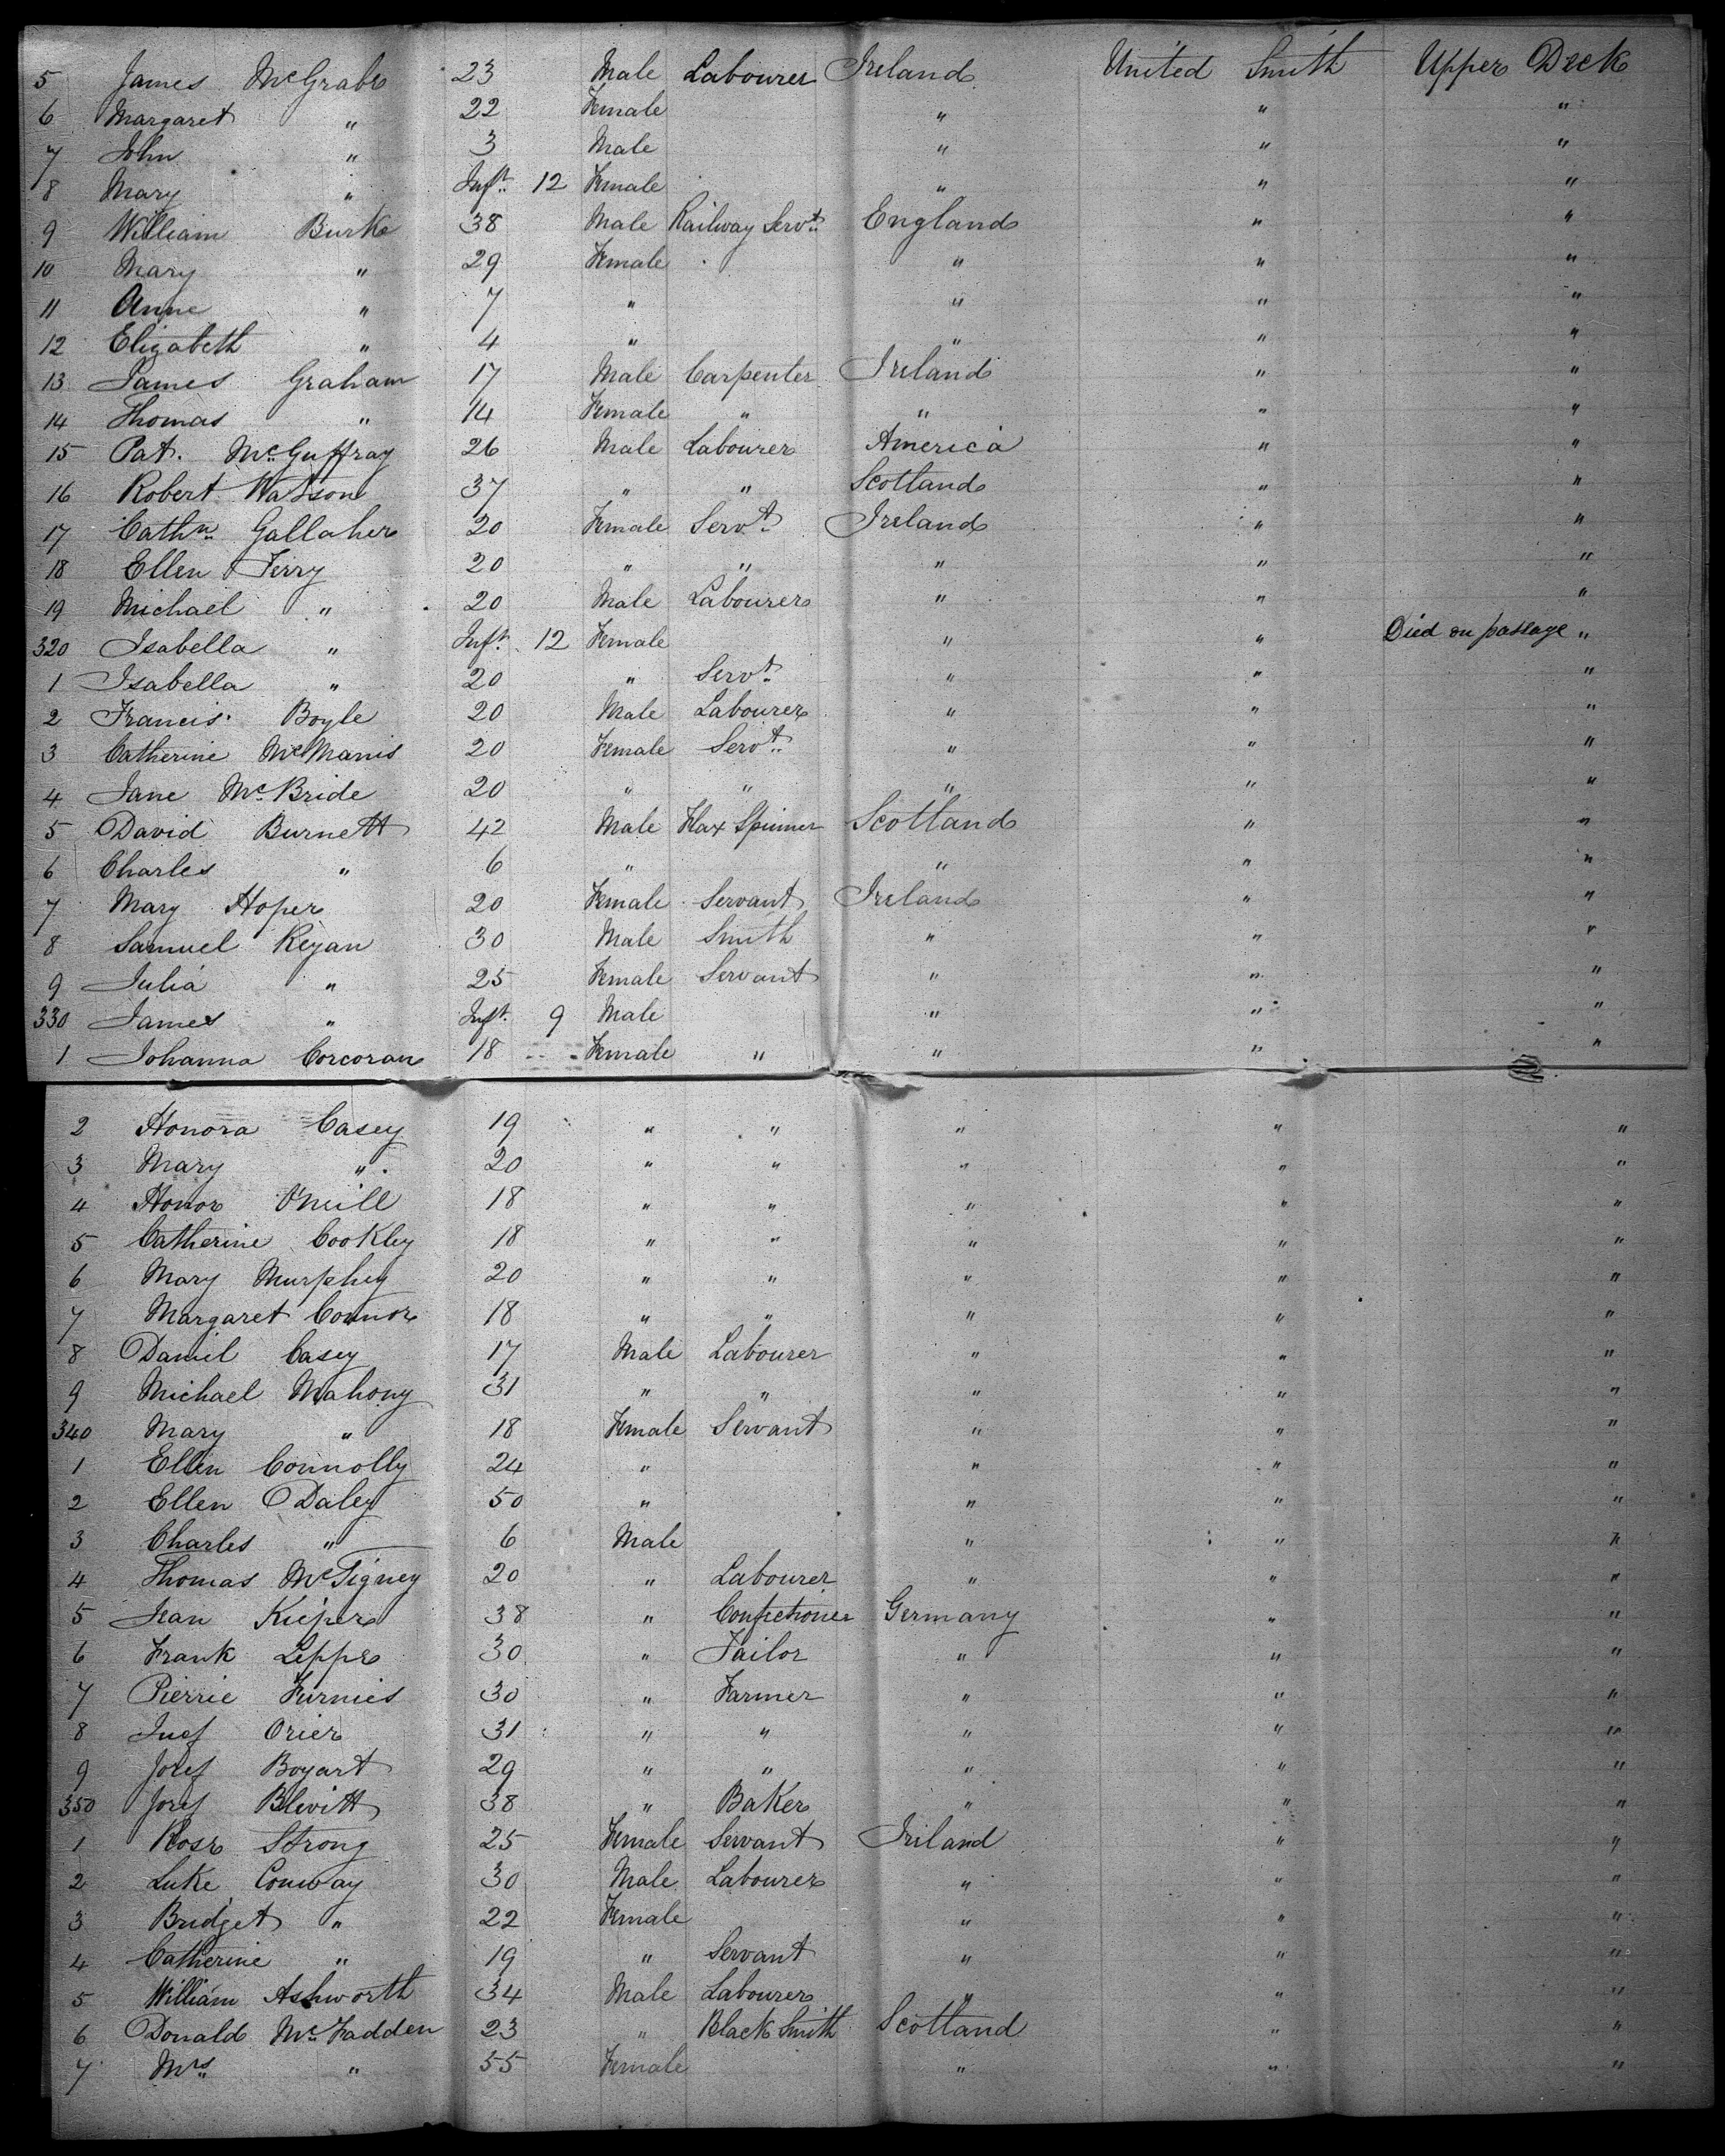 5 James McGrabe 23 Male Labourer Ireland United Smith Upper Deck
6 Margaret " 22 Female " " "
7 John " 3 Male " " "
8 Mary " Inft. 12 Female " " "
9 William Burke 38 Male Railway Servt. England " "
10 Mary " 29 Female " " "
11 Anne " 7 " " " "
12 Elizabeth " 4 " " " "
13 James Graham 17 Male Carpenter Ireland " "
14 Thomas " 14 Female " " " "
15 Pat. McGuffray 26 Male Labourer America " "
16 Robert Watson 37 " " Scotland " "
17 Cathn. Gallaher 20 Female Servt. Ireland " "
18 Ellen Ferry 20 " " " " "
19 Michael " 20 Male Labourer " " "
320 Isabella " Inft. 12 Female " " Died on passage "
1 Isabella " 20 " Servt. " " "
2 Francis Boyle 20 Male Labourer " " "
3 Catherine McManis 20 Female Servt. " " "
4 Jane McBride 20 " " " " "
5 David Burnett 42 Male Flax Spinner Scotland " "
6 Charles " 6 " " " "
7 Mary Hoper 20 Female Servant Ireland " "
8 Samuel Regan 30 Male Smith " " "
9 Julia " 25 Female Servant " " "
330 James " Inft. 9 Male " " "
1 Johanna Corcoran 18 Female " " " "
2 Honora Casey 19 " " " " "
3 Mary " 20 " " " " "
4 Honor O'Neill 18 " " " " "
5 Catherine Cookley 18 " " " " "
6 Mary Murphy 20 " " " " "
7 Margaret Connor 18 " " " " "
8 Daniel Casey 17 Male Labourer " " "
9 Michael Mahony 31 " " " " "
340 Mary " 18 Female Servant " " "
1 Ellen Connolly 24 " " " "
2 Ellen Daley 50 " " " "
3 Charles " 6 Male " " "
4 Thomas McTigney 20 " Labourer " " "
5 Jean Kieper 38 " Confectioner Germany " "
6 Frank Leppe 30 " Tailor " " "
7 Pierrie Furnies 30 " Farmer " " "
8 Orier 31 " " " " "
9 Josef Bogart 29 " " " " "
350 Josef Blevitt 38 " Baker " " "
1 Rose Strong 25 Female Servant Ireland " "
2 Luke Conway 30 Male Labourer " " "
3 Bridget " 22 Female " " "
4 Catherine " 19 " Servant " " "
5 William Ashworth 34 Male Labourer " " "
6 Donald McFadden 23 " Black Smith Scotland " "
7 Mrs. " 55 Female " " "